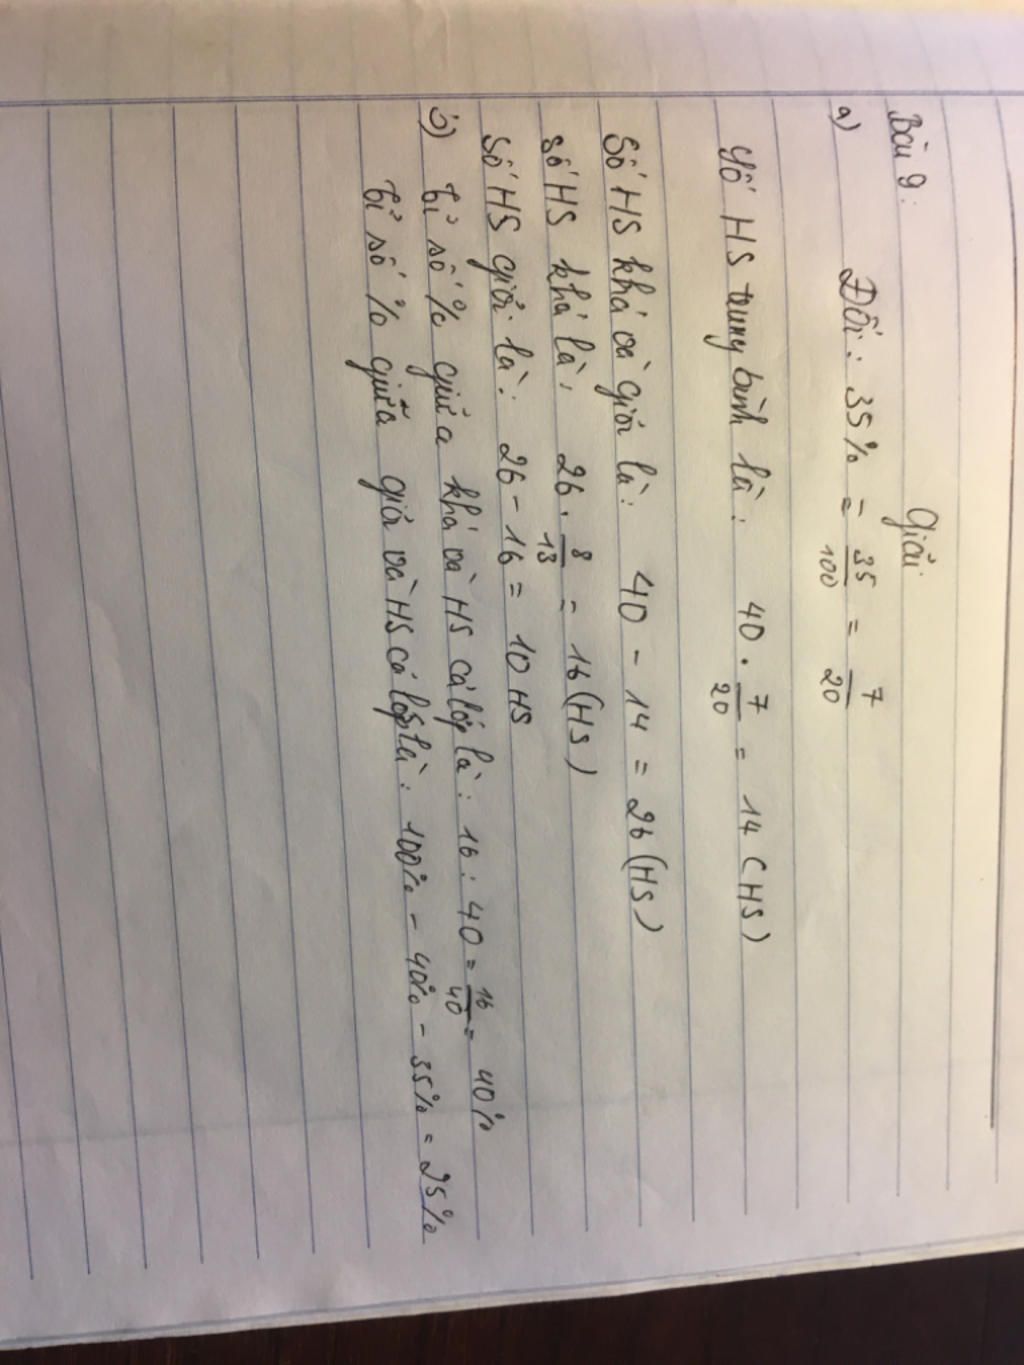 Bài 9:
Giải
a) Đổi: 35% = 35/100 = 7/20
Số HS trung bình là: 40 . 7/20 = 14 (HS)
Số HS khá và giỏi là: 40 - 14 = 26 (HS)
Số HS khá là: 26 . 8/13 = 16 (HS)
Số HS giỏi là: 26 - 16 = 10 HS
b) tỉ số % giữa khá và HS cả lớp là: 16 : 40 = 16/40 = 40%
tỉ số % giữa giỏi và HS cả lớp là: 100% - 40% - 35% = 25%